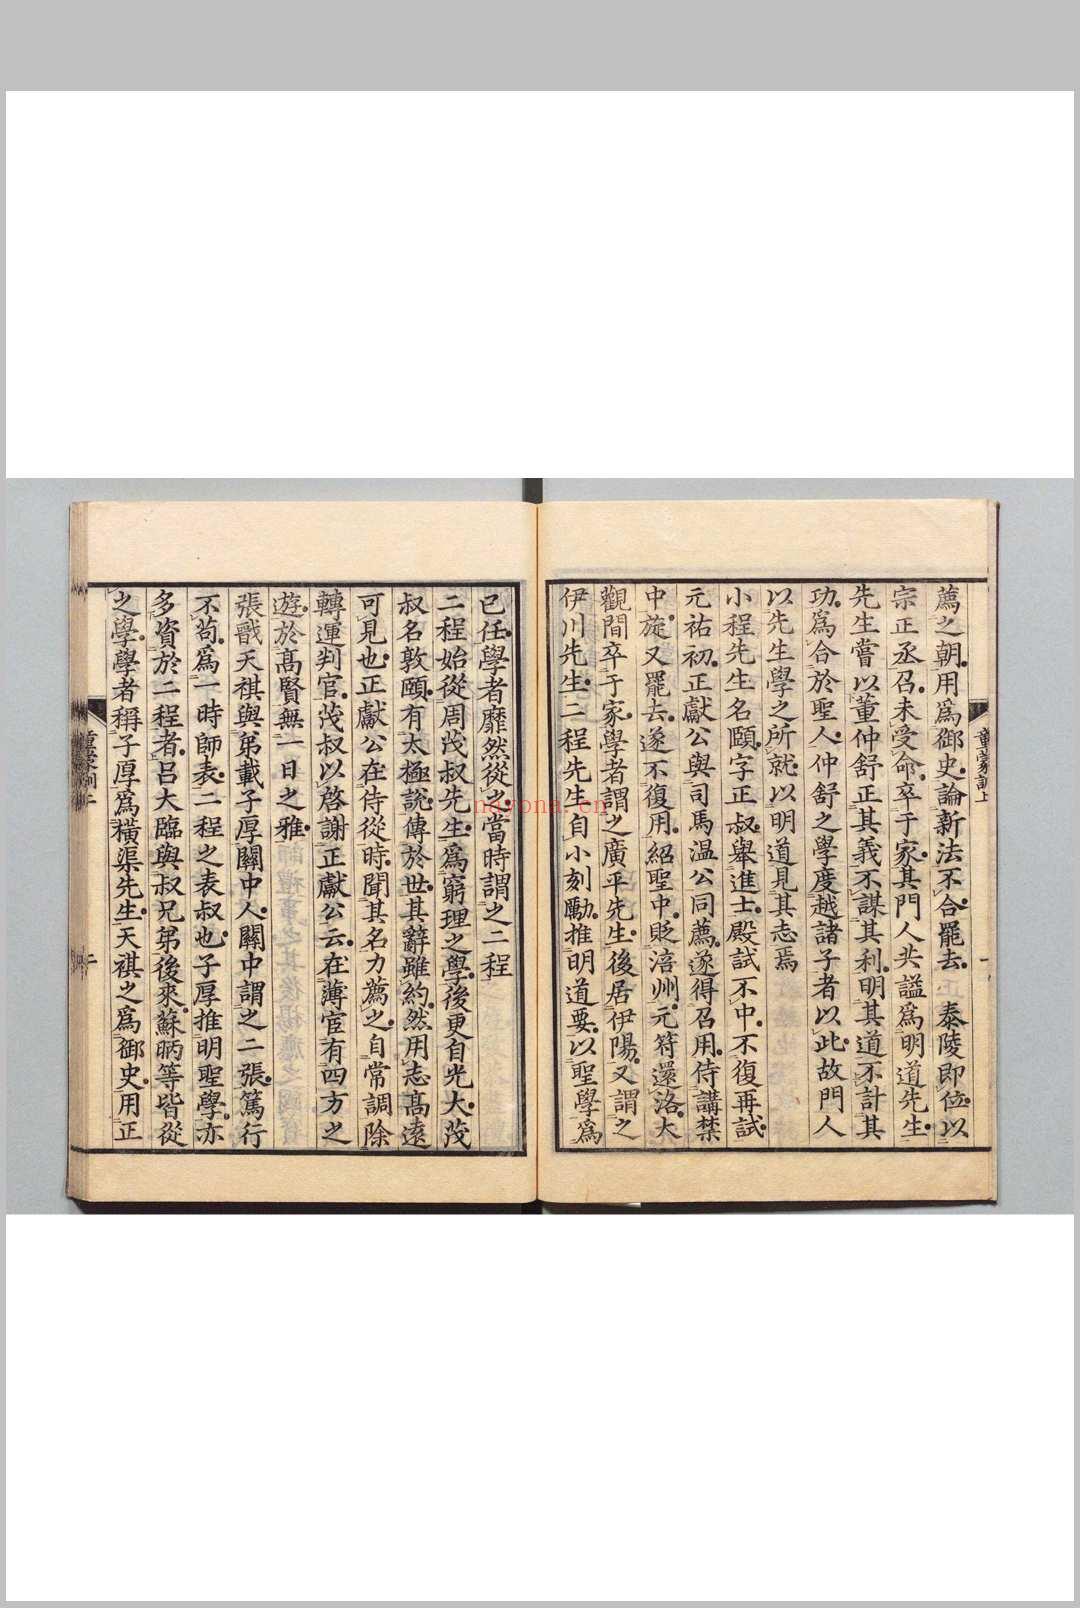 薦之朝用爲御史論新法不合罷去　泰陵即位以
宗正丞召未受命卒于家其門人共謚爲明道先生
先生嘗以董仲舒正其義不謀其利明其道不計其
功爲合於聖人仲舒之學度越諸子者以此故門人
以先生學之所就以明道見其志焉
小程先生名頤字正叔舉進士殿試不中不復再試
元祐初正獻公與司馬温公同薦遂得召用侍講禁
中旋又罷去遂不復用紹聖中貶涪州元符還洛大
觀間卒于家學者謂之廣平先生後居伊陽又謂之
伊川先生二程先生自小刻勵推明道要以聖學爲
童蒙訓上
一
已任學者靡然從之當時謂之二程
二程始從周茂叔先生爲窮理之學後更自光大茂
叔名敦頤有太極說傳於世其辭雖約然用志高遠
可見也正獻公在侍從時聞其名力薦之自常調除
轉運判官茂叔以啓謝正獻公云在薄宦有四方之
遊於高賢無一日之雅
張戩天祺與弟載子厚關中人關中謂之二張篤行
不苟爲一時師表二程之表叔也子厚推明聖學亦
多資於二程者呂大臨與叔兄弟後來蘇昞等皆從
之學學者稱子厚爲橫渠先生天祺之爲御史用正
nayona.cn